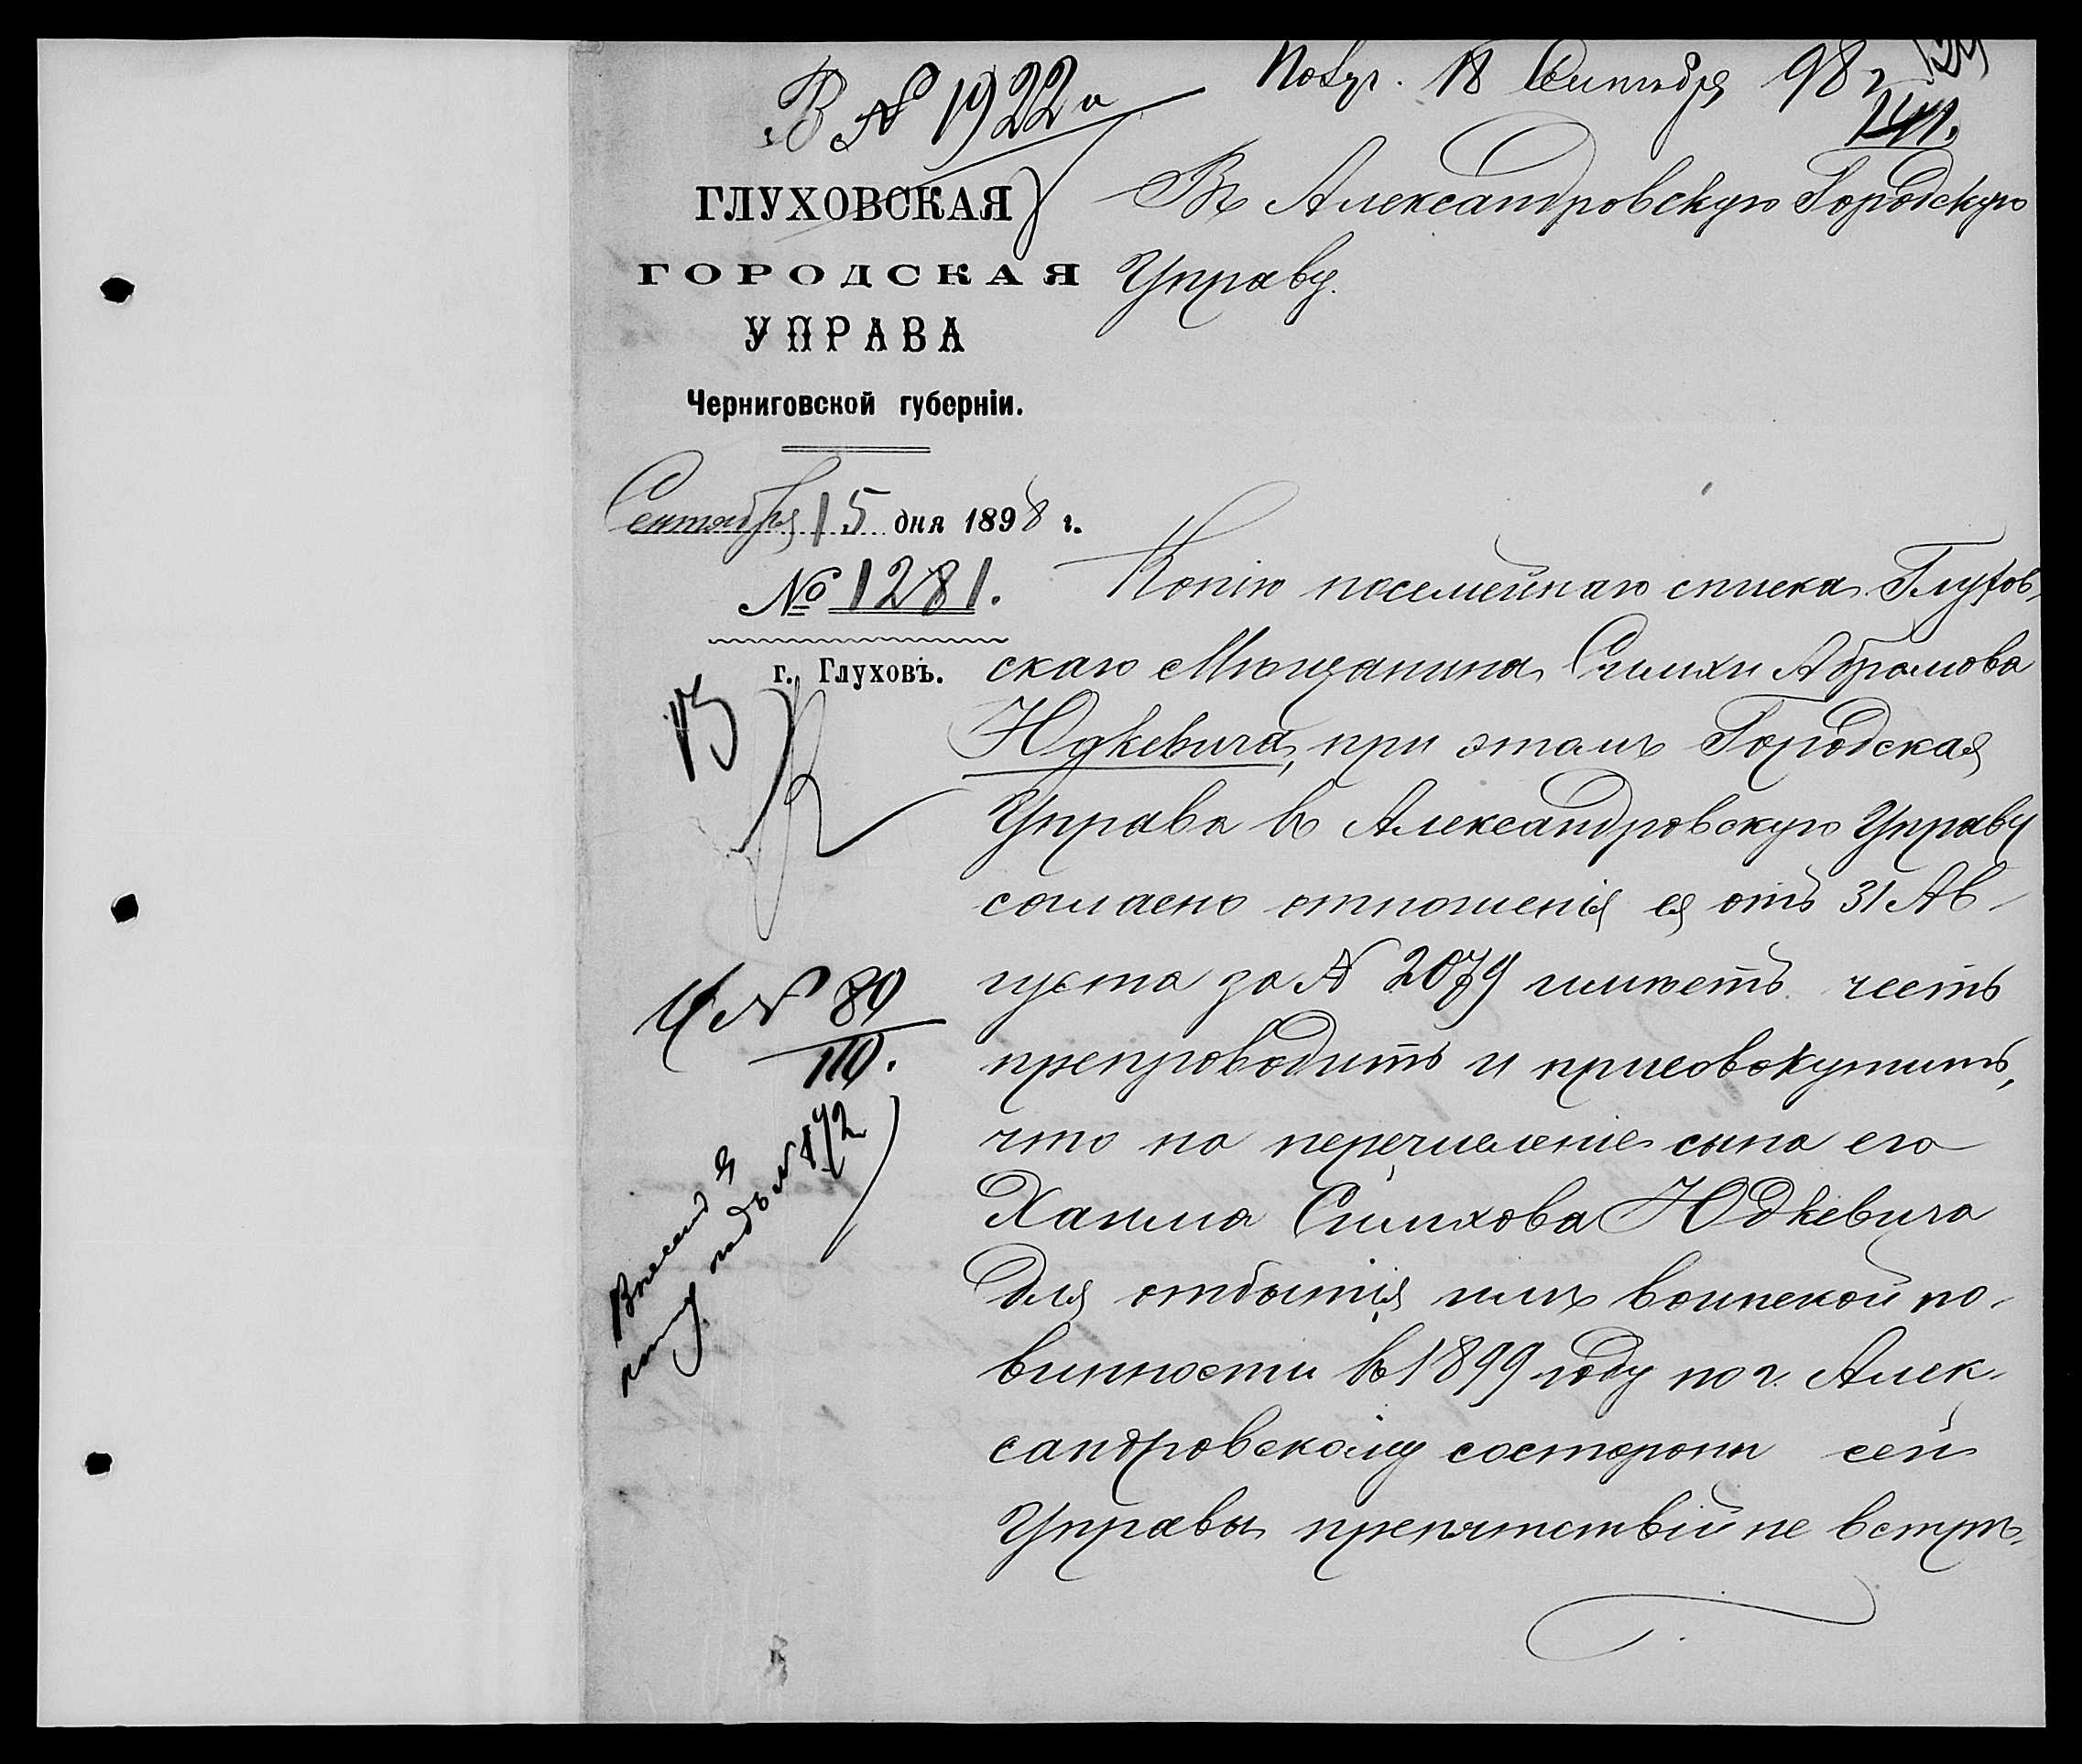 В № 1922а
Получ. 18 Сентября 98 г.
ГЛУХОВСКАЯ
ГОРОДСКАЯ
УПРАВА
Черниговской губерніи.
Сентября 15 дня 1898 г.
№ 1281.
г. Глуховъ.
Въ Александровскую Городскую
Управу.
Копію посемейнаго списка Глухов-
скаго Мѣщанина Симхи Абрамова
Юдкевича, при этомъ Городская
Управа въ Александровскую Управу
согласно отношенія ея отъ 31 Ав-
густа за № 2079 имѣетъ честь
препроводить и присовокупить,
что на перечисленіе сына его
Хаима Симхова Юдкевича
для отбытія имъ воинской по-
винности въ 1899 году по г. Алек-
сандровскому состороны сей
Управы препятствій не встрѣ-
№ 80
110.